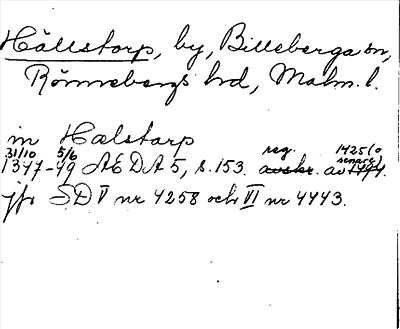 Hällstorp, by, Billeberga sn,
Rönnebergs hd, Malm. l.
in Hælstarp
31/10 5/6 reg. 1425 (o senare)
1347-49 AEDA 5, s. 153. avskr. av 1494.
jfr SD V nr 4258 och VI nr 4443.